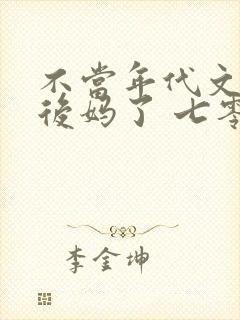 不當年代文
後妈了 七零
李金坤